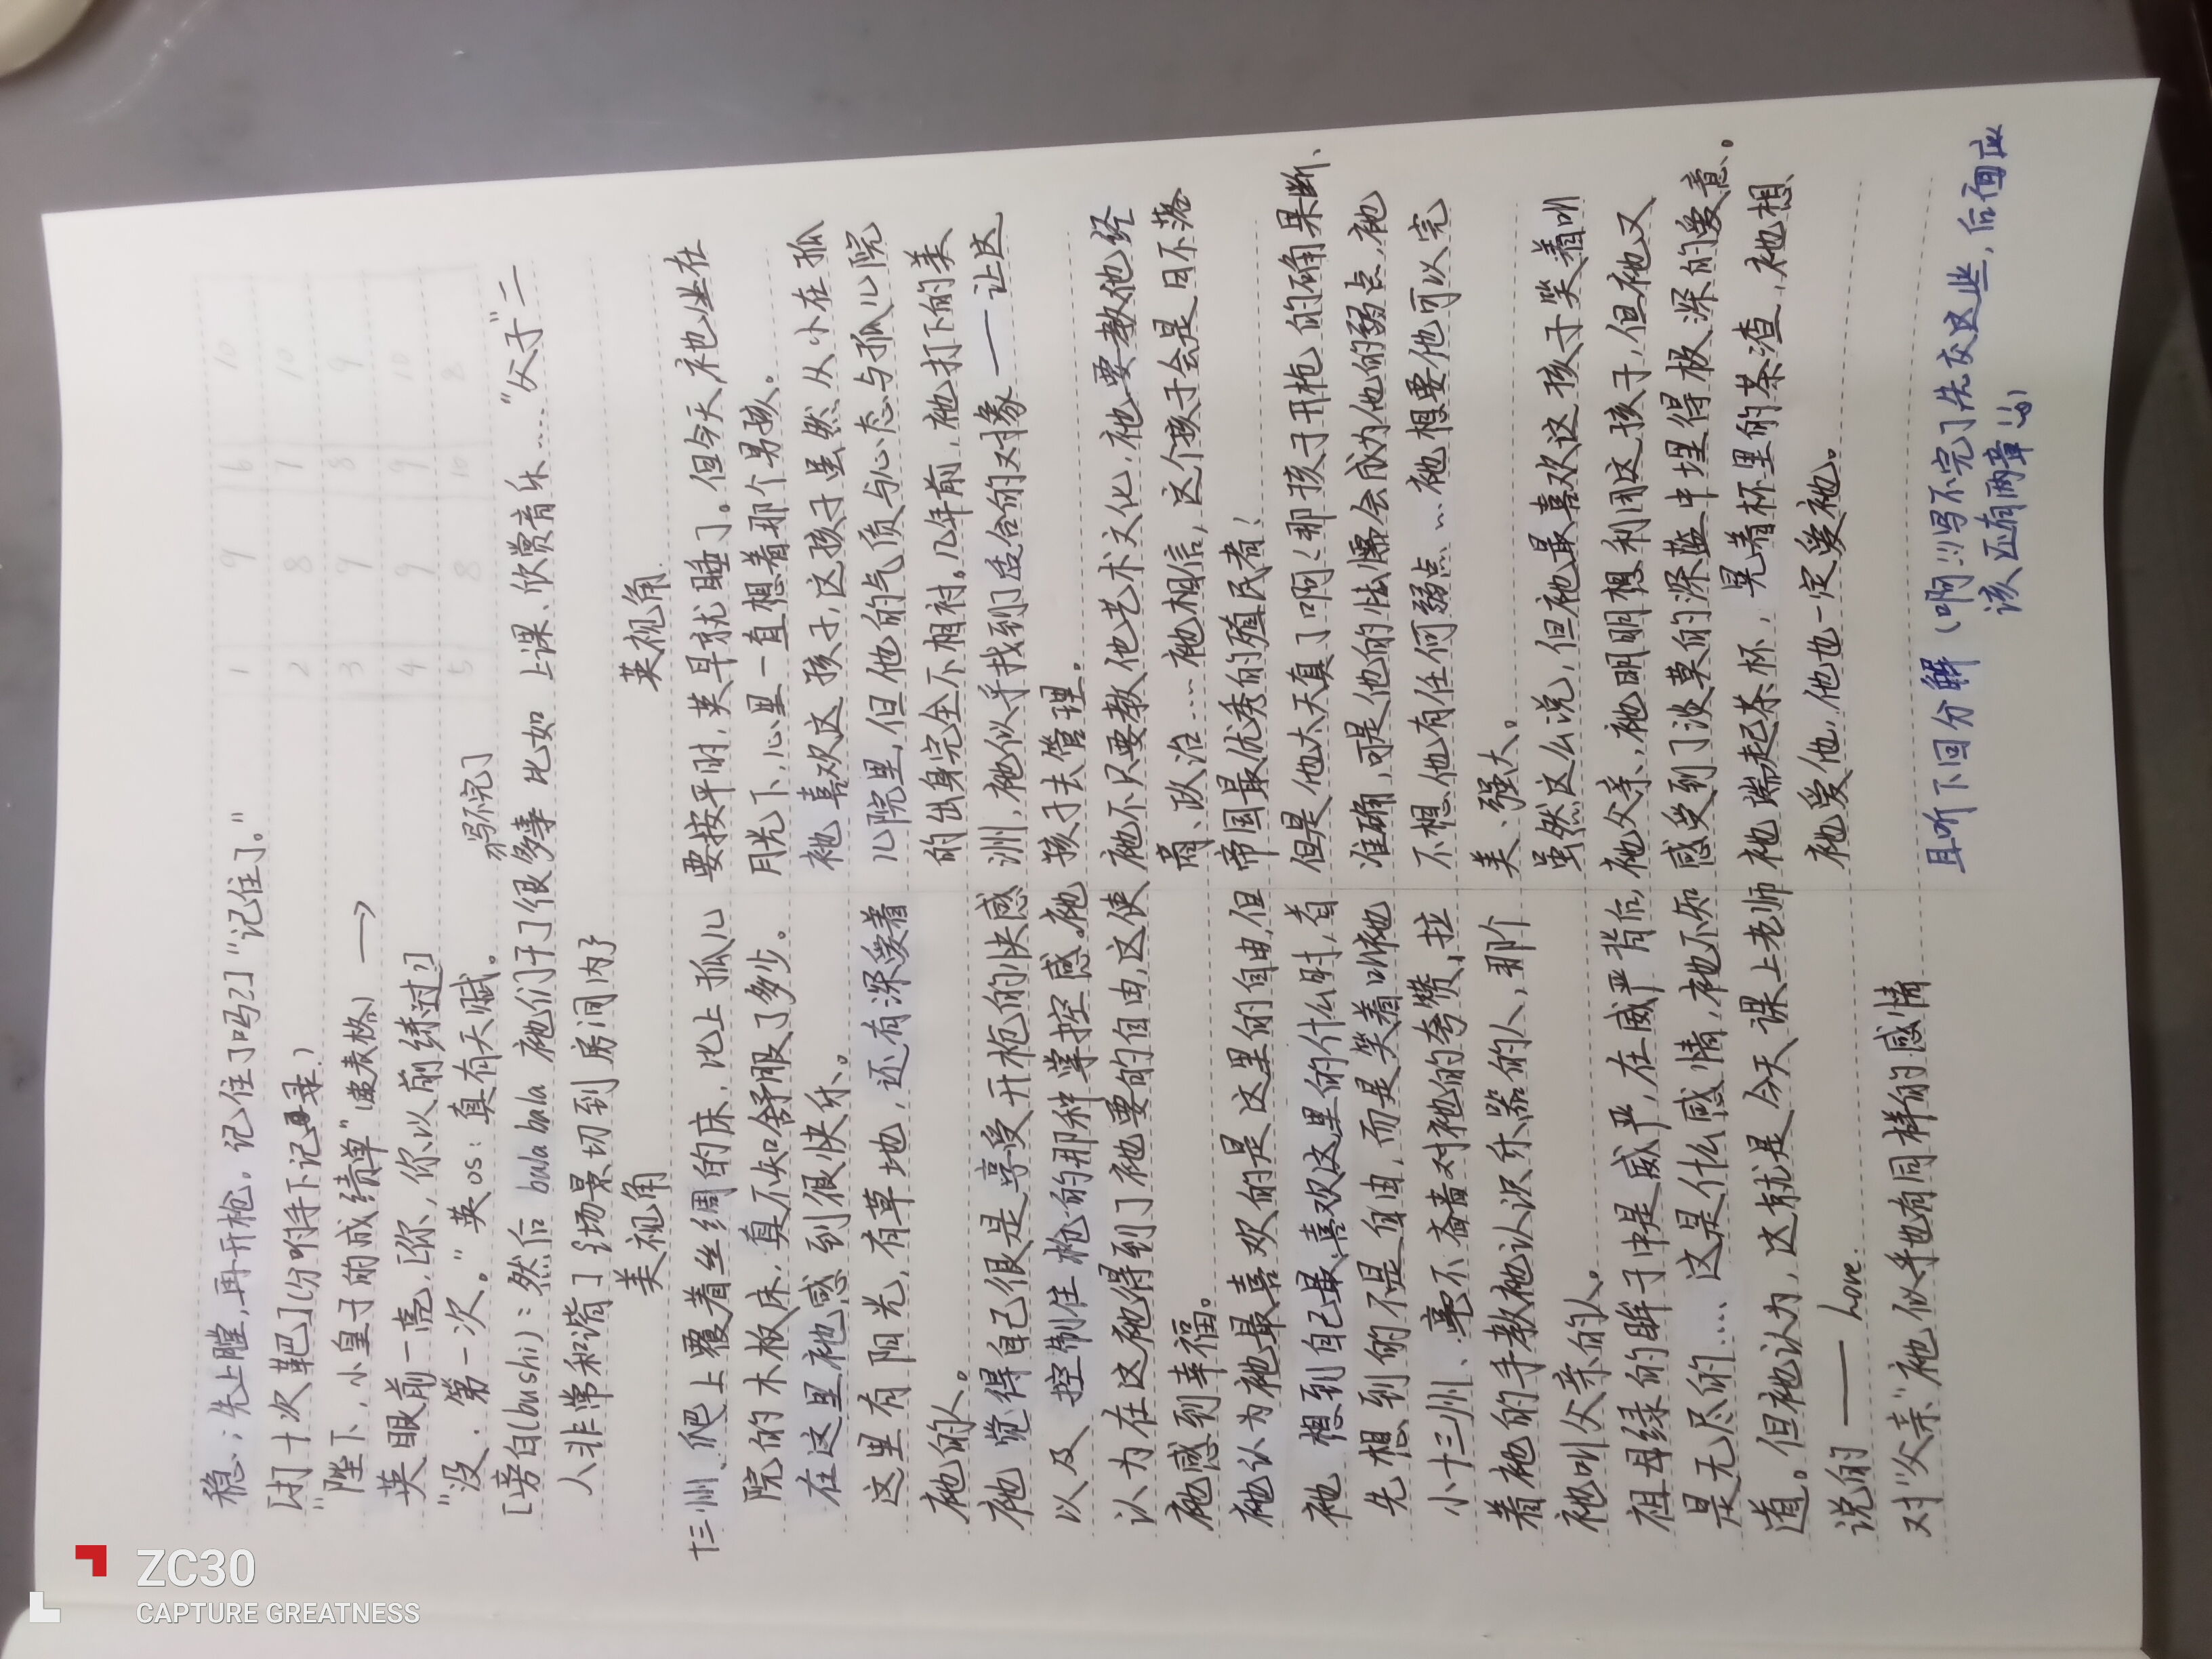 稳；先上膛，再开枪。记住了吗？] “记住了。”
[打十次靶] (分咐手下记录)
“陛下，小皇子的成绩单” (递表格) →
英眼前一亮，[你、你以前练过？]
“没，第一次。” 英os：真有天赋。
写不完]
[旁白(bushi)：然后 bala bala 祂们干了很多事 比如 上课、欣赏音乐…… “父子”二
人非常和谐] {场景切到房间内}
1 9 6 10
2 8 7 10
3 9 8 9
4 9 9 10
5 8 10 8
美视角
十三州、爬上覆着丝绸的床，比上孤儿
院的木板床，真不知舒服了多少。
在这里祂感到很快乐。
这里有阳光，有草地，还有深爱着
祂的人。
祂觉得自己很是享受开枪的快感
以及 控制住枪的那种掌控感。祂
认为在这祂得到了祂要的自由，这使
祂感到幸福。
祂认为祂最喜欢的是这里的自由，但
祂 想到自己最喜欢这里的什么时，首
先想到的不是自由，而是笑着叫祂
小十三州、毫不吝啬对祂的夸赞、拉
着祂的手教祂认识乐器的人，那个
祂叫父亲的人。
祖母绿的眸子中是威严，在威严背后，
是无尽的…… 这是什么感情，祂不知
道。但祂认为，这就是今天课上老师
说的 —— Love.
对“父亲”祂似乎也有同样的感情
英视角
要按平时，英早就睡了。但今天，祂坐在
月光下，心里一直想着那个男孩。
祂喜欢这孩子，这孩子虽然从小在孤
儿院里，但他的气质与心态与孤儿院
的出身完全不相衬。几年前，祂打下的美
洲，祂似乎找到了适合的对象——让这
孩子去管理。
祂不只要教他艺术文化，祂要教他经
商、政治……祂相信，这个孩子会是日不落
帝国最优秀的殖民者！
但是他太天真了啊(那孩子开枪的确果断、
准确，可是他的怯懦会成为他的弱点，祂
不想他有任何弱点…祂想要他可以完
美、强大。
虽然这么说，但祂最喜欢这孩子笑着叫
祂父亲、祂明明想利用这孩子，但祂又
感受到了淡莫的深蓝中埋得极深的爱意。
祂端起茶杯，晃着杯里的茶渣，祂想、
祂爱他，他也一定爱祂。
且听下回分解 (啊!!!写不完了先交这些，后面应
该还有两章!!)
ZC30
CAPTURE GREATNESS